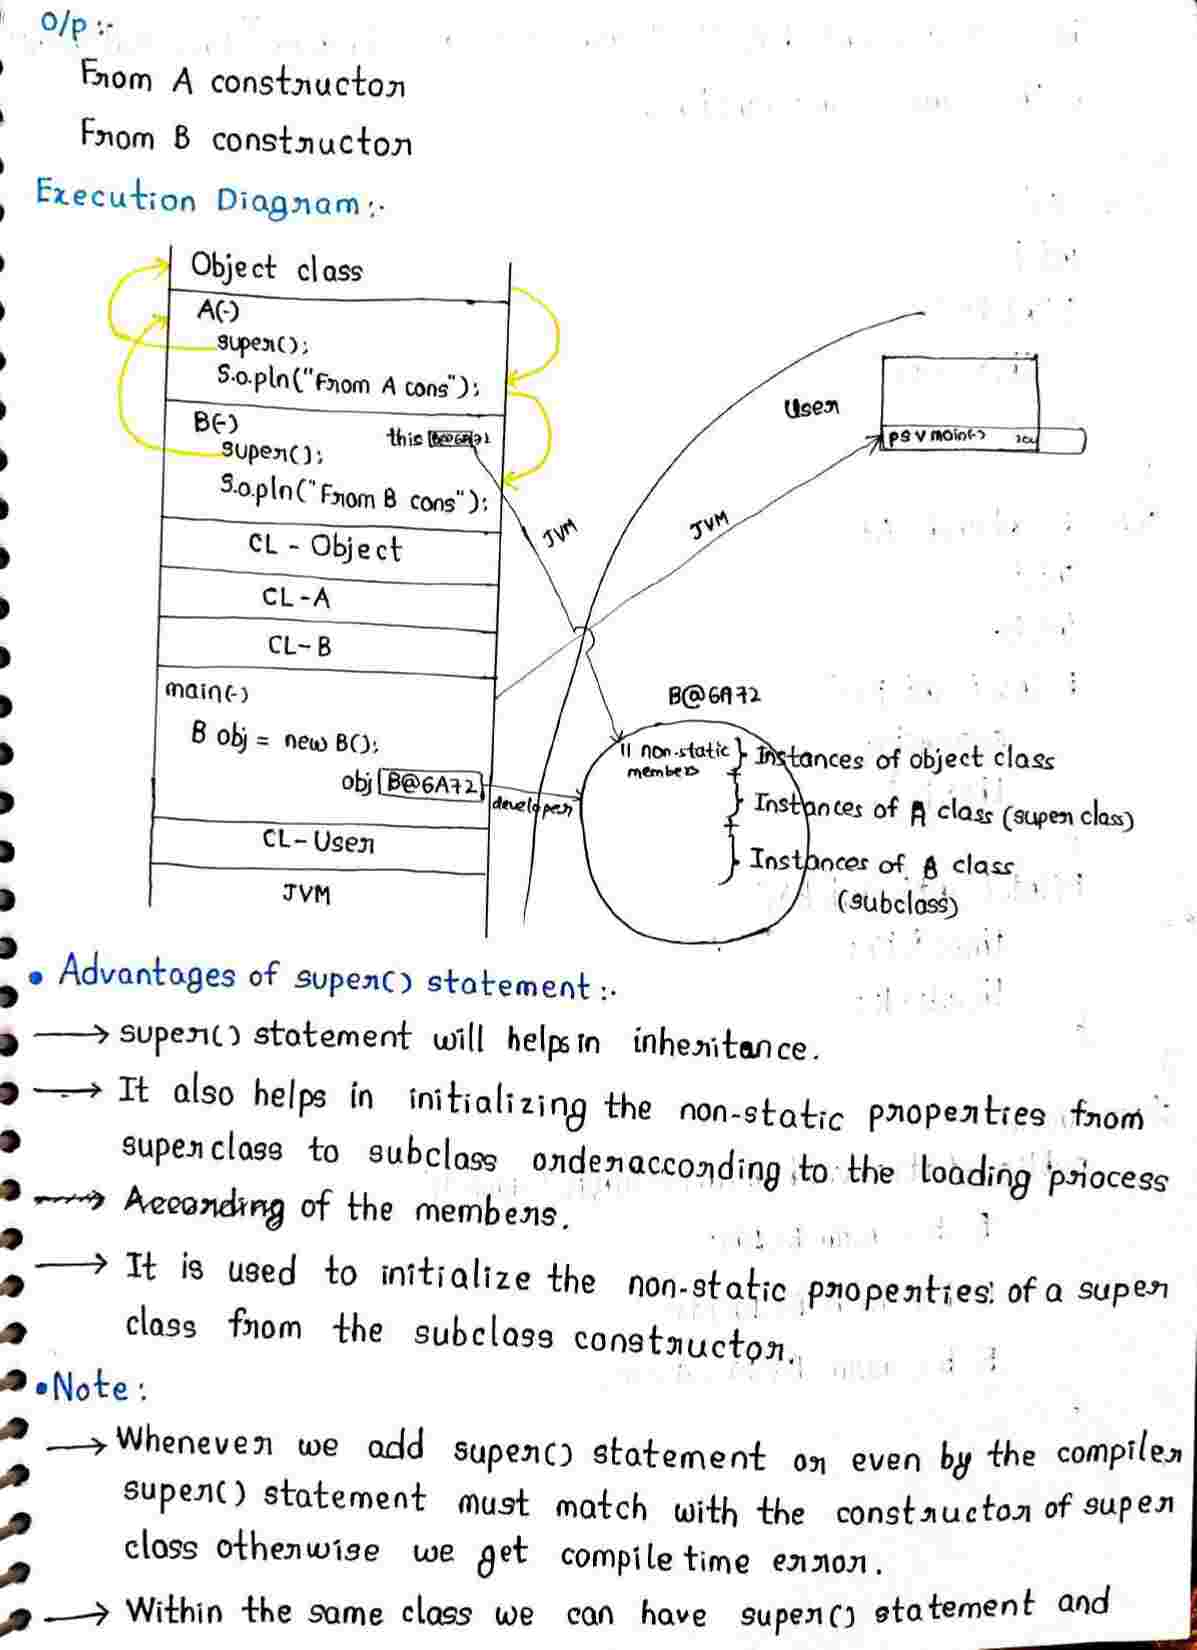 O/p :-
From A constructor
From B constructor
Execution Diagram :-
Object class
A(-)
super();
S.o.pln("From A cons");
B(-)
this B@6A72
super();
S.o.pln("From B cons");
CL - Object
CL - A
CL - B
main(-)
B obj = new B();
obj B@6A72
CL - User
JVM
JVM
JVM
developer
User
psv main(-)
B@6A72
11 non-static
members
} Instances of object class
+
} Instances of A class (super class)
+
} Instances of B class
(subclass)
• Advantages of super() statement :-
→ super() statement will helps in inheritance.
→ It also helps in initializing the non-static properties from
superclass to subclass order according to the loading process
→ According of the members.
→ It is used to initialize the non-static properties of a super
class from the subclass constructor.
• Note :
→ Whenever we add super() statement or even by the compiler
super() statement must match with the constructor of super
class otherwise we get compile time error.
→ Within the same class we can have super() statement and